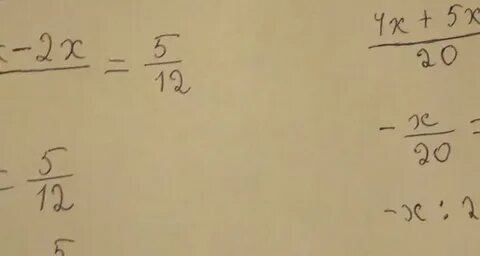 x - 2x = 5/12
= 5/12
5
4x + 5x
20
- x/20 =
-x : 2